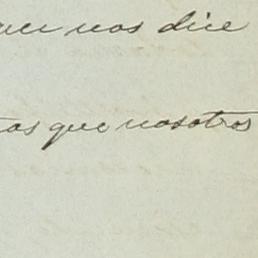 nos dice
que nosotros